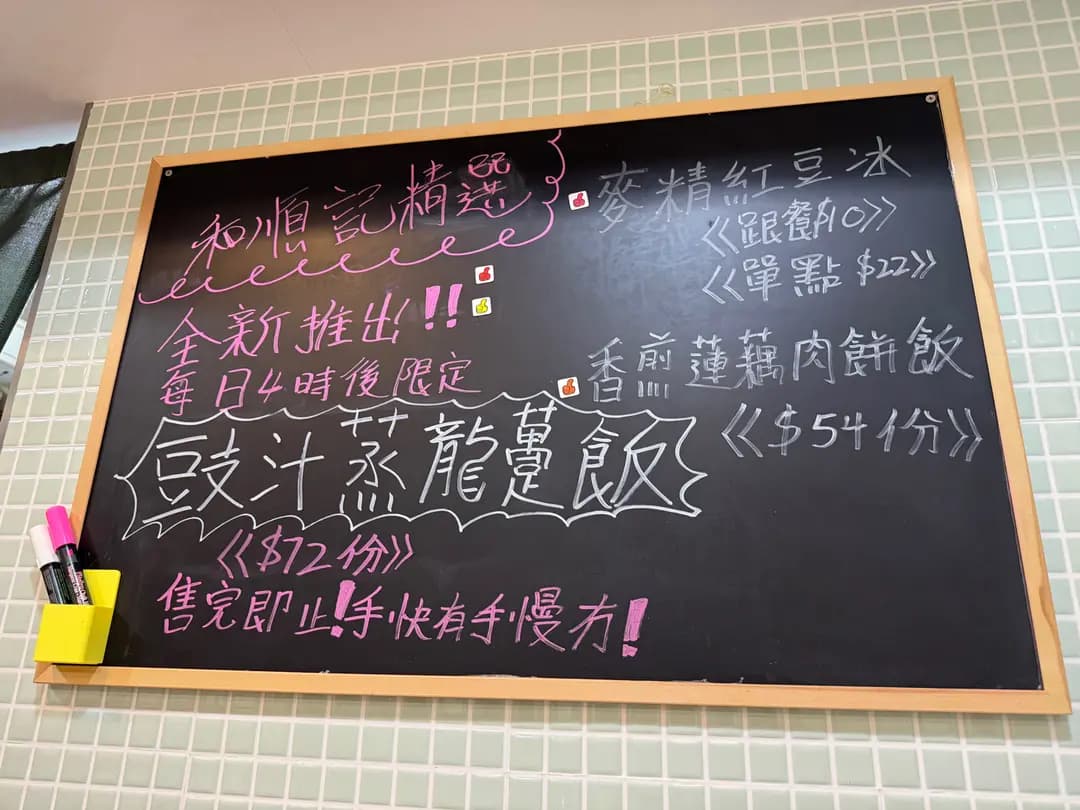 和順記精選
全新推出!!
每日4時後限定
豉汁蒸龍躉飯
《$72份》
售完即止!手快有手慢冇!
麥精紅豆冰
《跟餐$10》
《單點$22》
香煎蓮藕肉餅飯
《$54份》